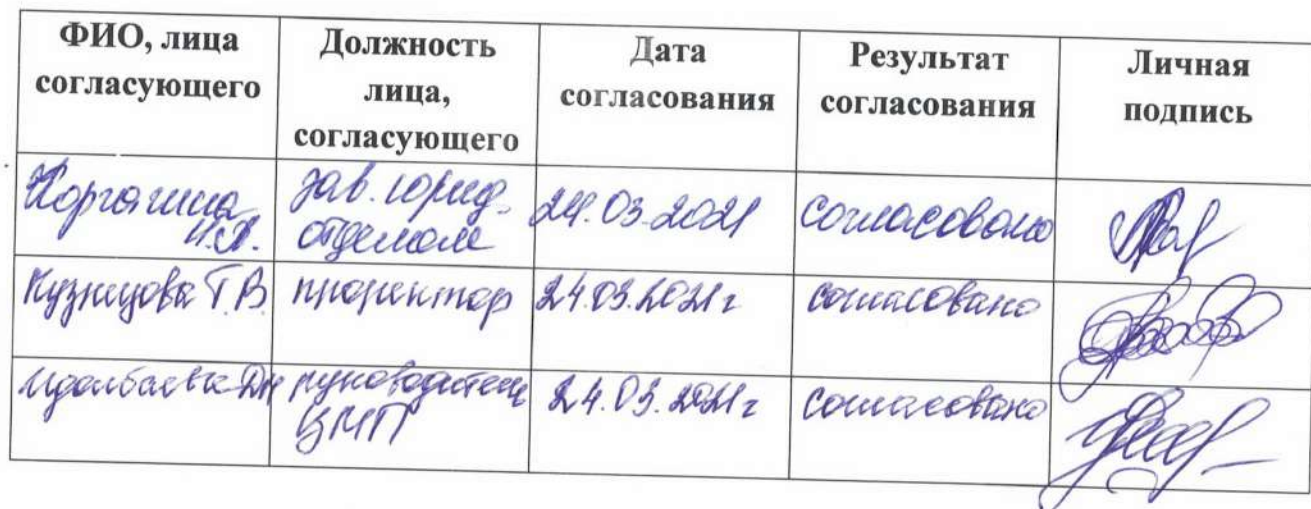 ФИО, лица согласующего
Должность лица, согласующего
Дата согласования
Результат согласования
Личная подпись
зав. юрид. отделом
24.03.2021
согласовано
Кузнецова Т.В.
проректор
24.03.2021г
согласовано
руководитель ЦМП
24.03.2021г
согласовано